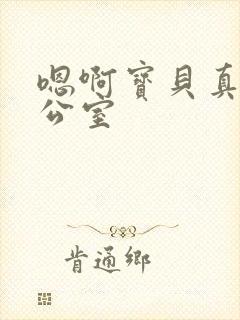 嗯啊寶貝真
公室
肯通鄉